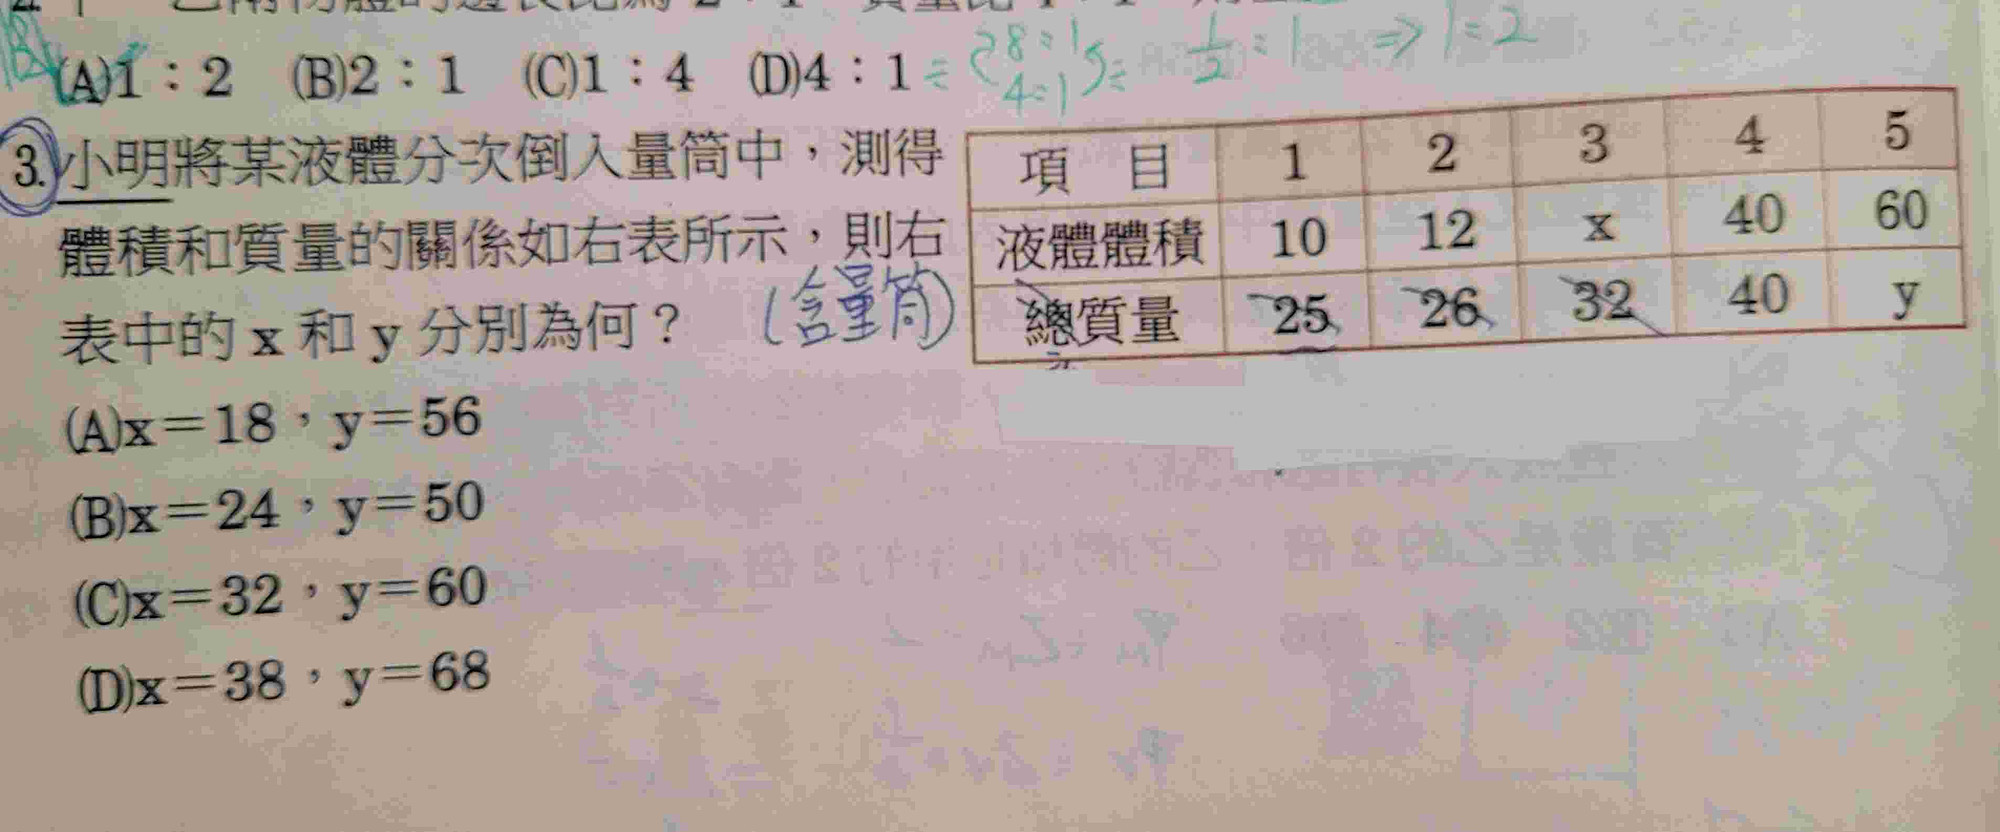 (A)1：2 (B)2：1 (C)1：4 (D)4：1
3.小明將某液體分次倒入量筒中，測得
體積和質量的關係如右表所示，則右
表中的 x 和 y 分別為何？ (含量筒)
項目 1 2 3 4 5
液體體積 10 12 x 40 60
總質量 25 26 32 40 y
(A)x＝18，y＝56
(B)x＝24，y＝50
(C)x＝32，y＝60
(D)x＝38，y＝68